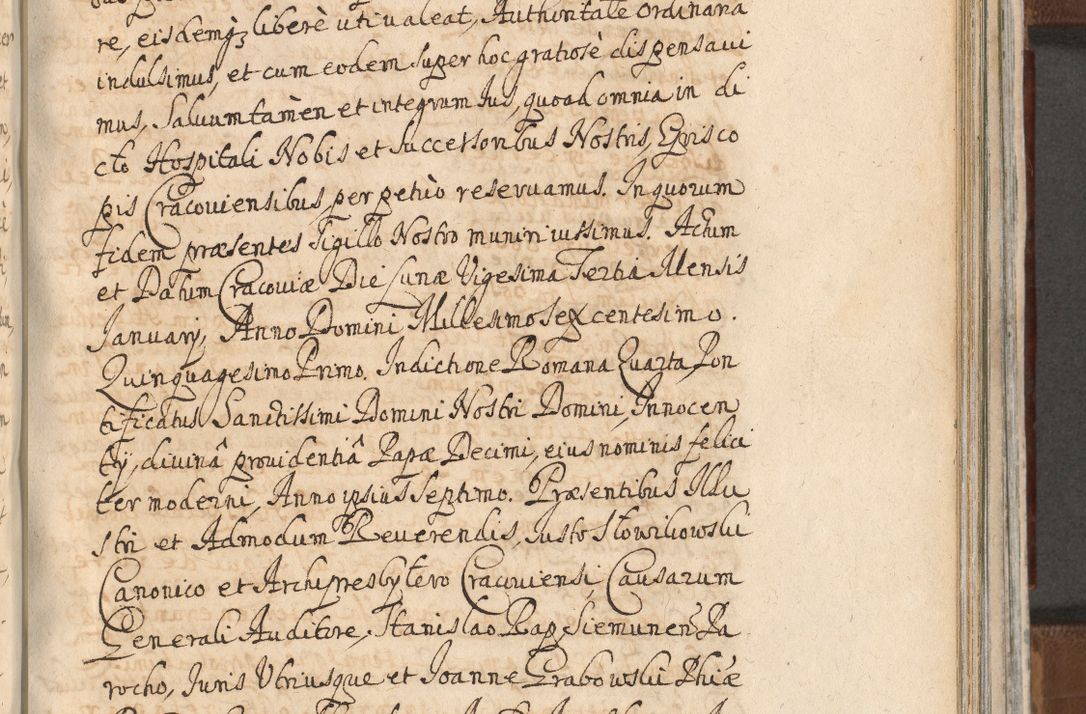 re, eisdemq3 liberè uti valeat, Authoritate ordinaria
indulsimus, et cum eodem super hoc gratiosè dispensaui
mus, Saluum tamèn et integrum Ius, quoad omnia in di
cto Hospitali Nobis et Successoribus Nostris, Episco
pis Cracouiensibus, perpetuò reseruamus. In quorum
fidem præsentes Sigillo Nostro muniri iussimus. Actum
et Datum Cracouiæ Die Lunæ Vigesima Tertia Mensis
Ianuarij, Anno Domini Millesimo Sexcentesimo.
Quinquagesimo Primo. Indictione Romana Quarta, Pon
tificatus Sanctissimi Domini Nostri Domini, Innocen
tij, diuinâ prouidentiâ Papæ Decimi, eius nominis felici
ter moderni, Anno ipsius Septimo. Præsentibus Illu
stri et Admodum Reuerendis, Iusto Słowikowski
Canonico et Archipresbytero Cracouiensi, Causarum
Generali Auditore, Stanislao Rap, Siemunen Pa
rocho, Iuris Vtriusque et Ioanne Grabowski Phiæ